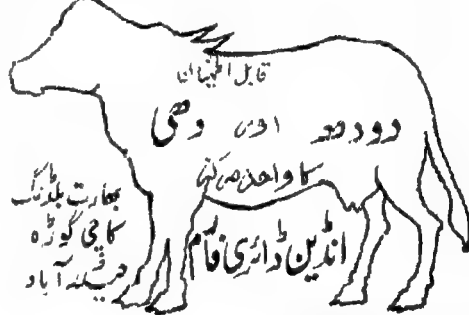 قابل اطمینان
دودھ اور دھی
کا واحد مرکز
انڈین ڈائری فارم
بھارت بلڈنگ
کاچی گوڑہ
حیدرآباد